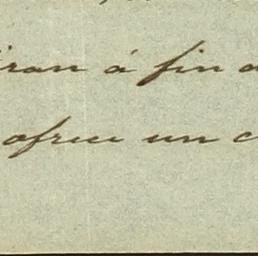 iran á fin d
ofrece un c